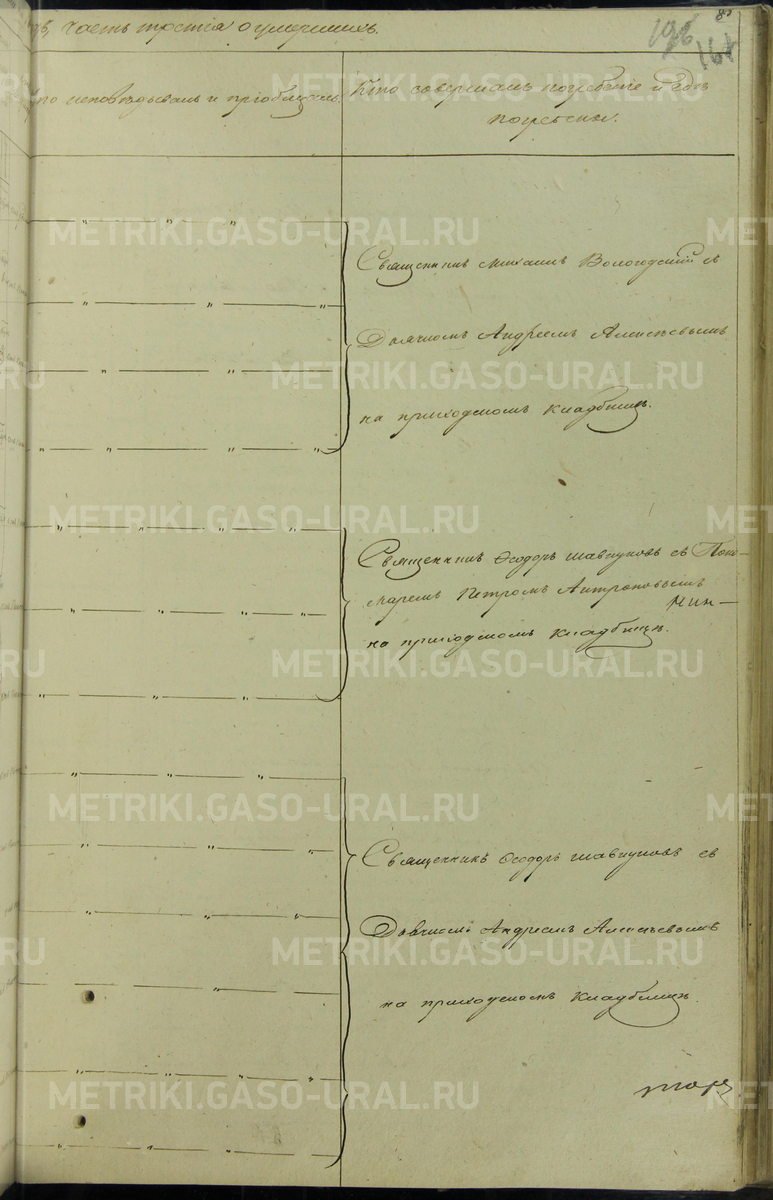 Часть третія о умершихъ.
196
161
Кто исповѣдывалъ и пріобщалъ.
Кто совершалъ погребеніе и гдѣ
погребены.
Священникъ Михаилъ Вологодскій съ
Дьячкомъ Андреемъ Алексѣевымъ
на приходскомъ кладбищѣ.
Священникъ Ѳеодоръ Шавкуновъ съ Поно-
маремъ Петромъ Антроповымъ
на приходскомъ кладбищѣ.
Священникъ Ѳеодоръ Шавкуновъ съ
Дьячкомъ Андреемъ Алексѣевымъ
на приходскомъ кладбищѣ.
METRIKI.GASO-URAL.RU